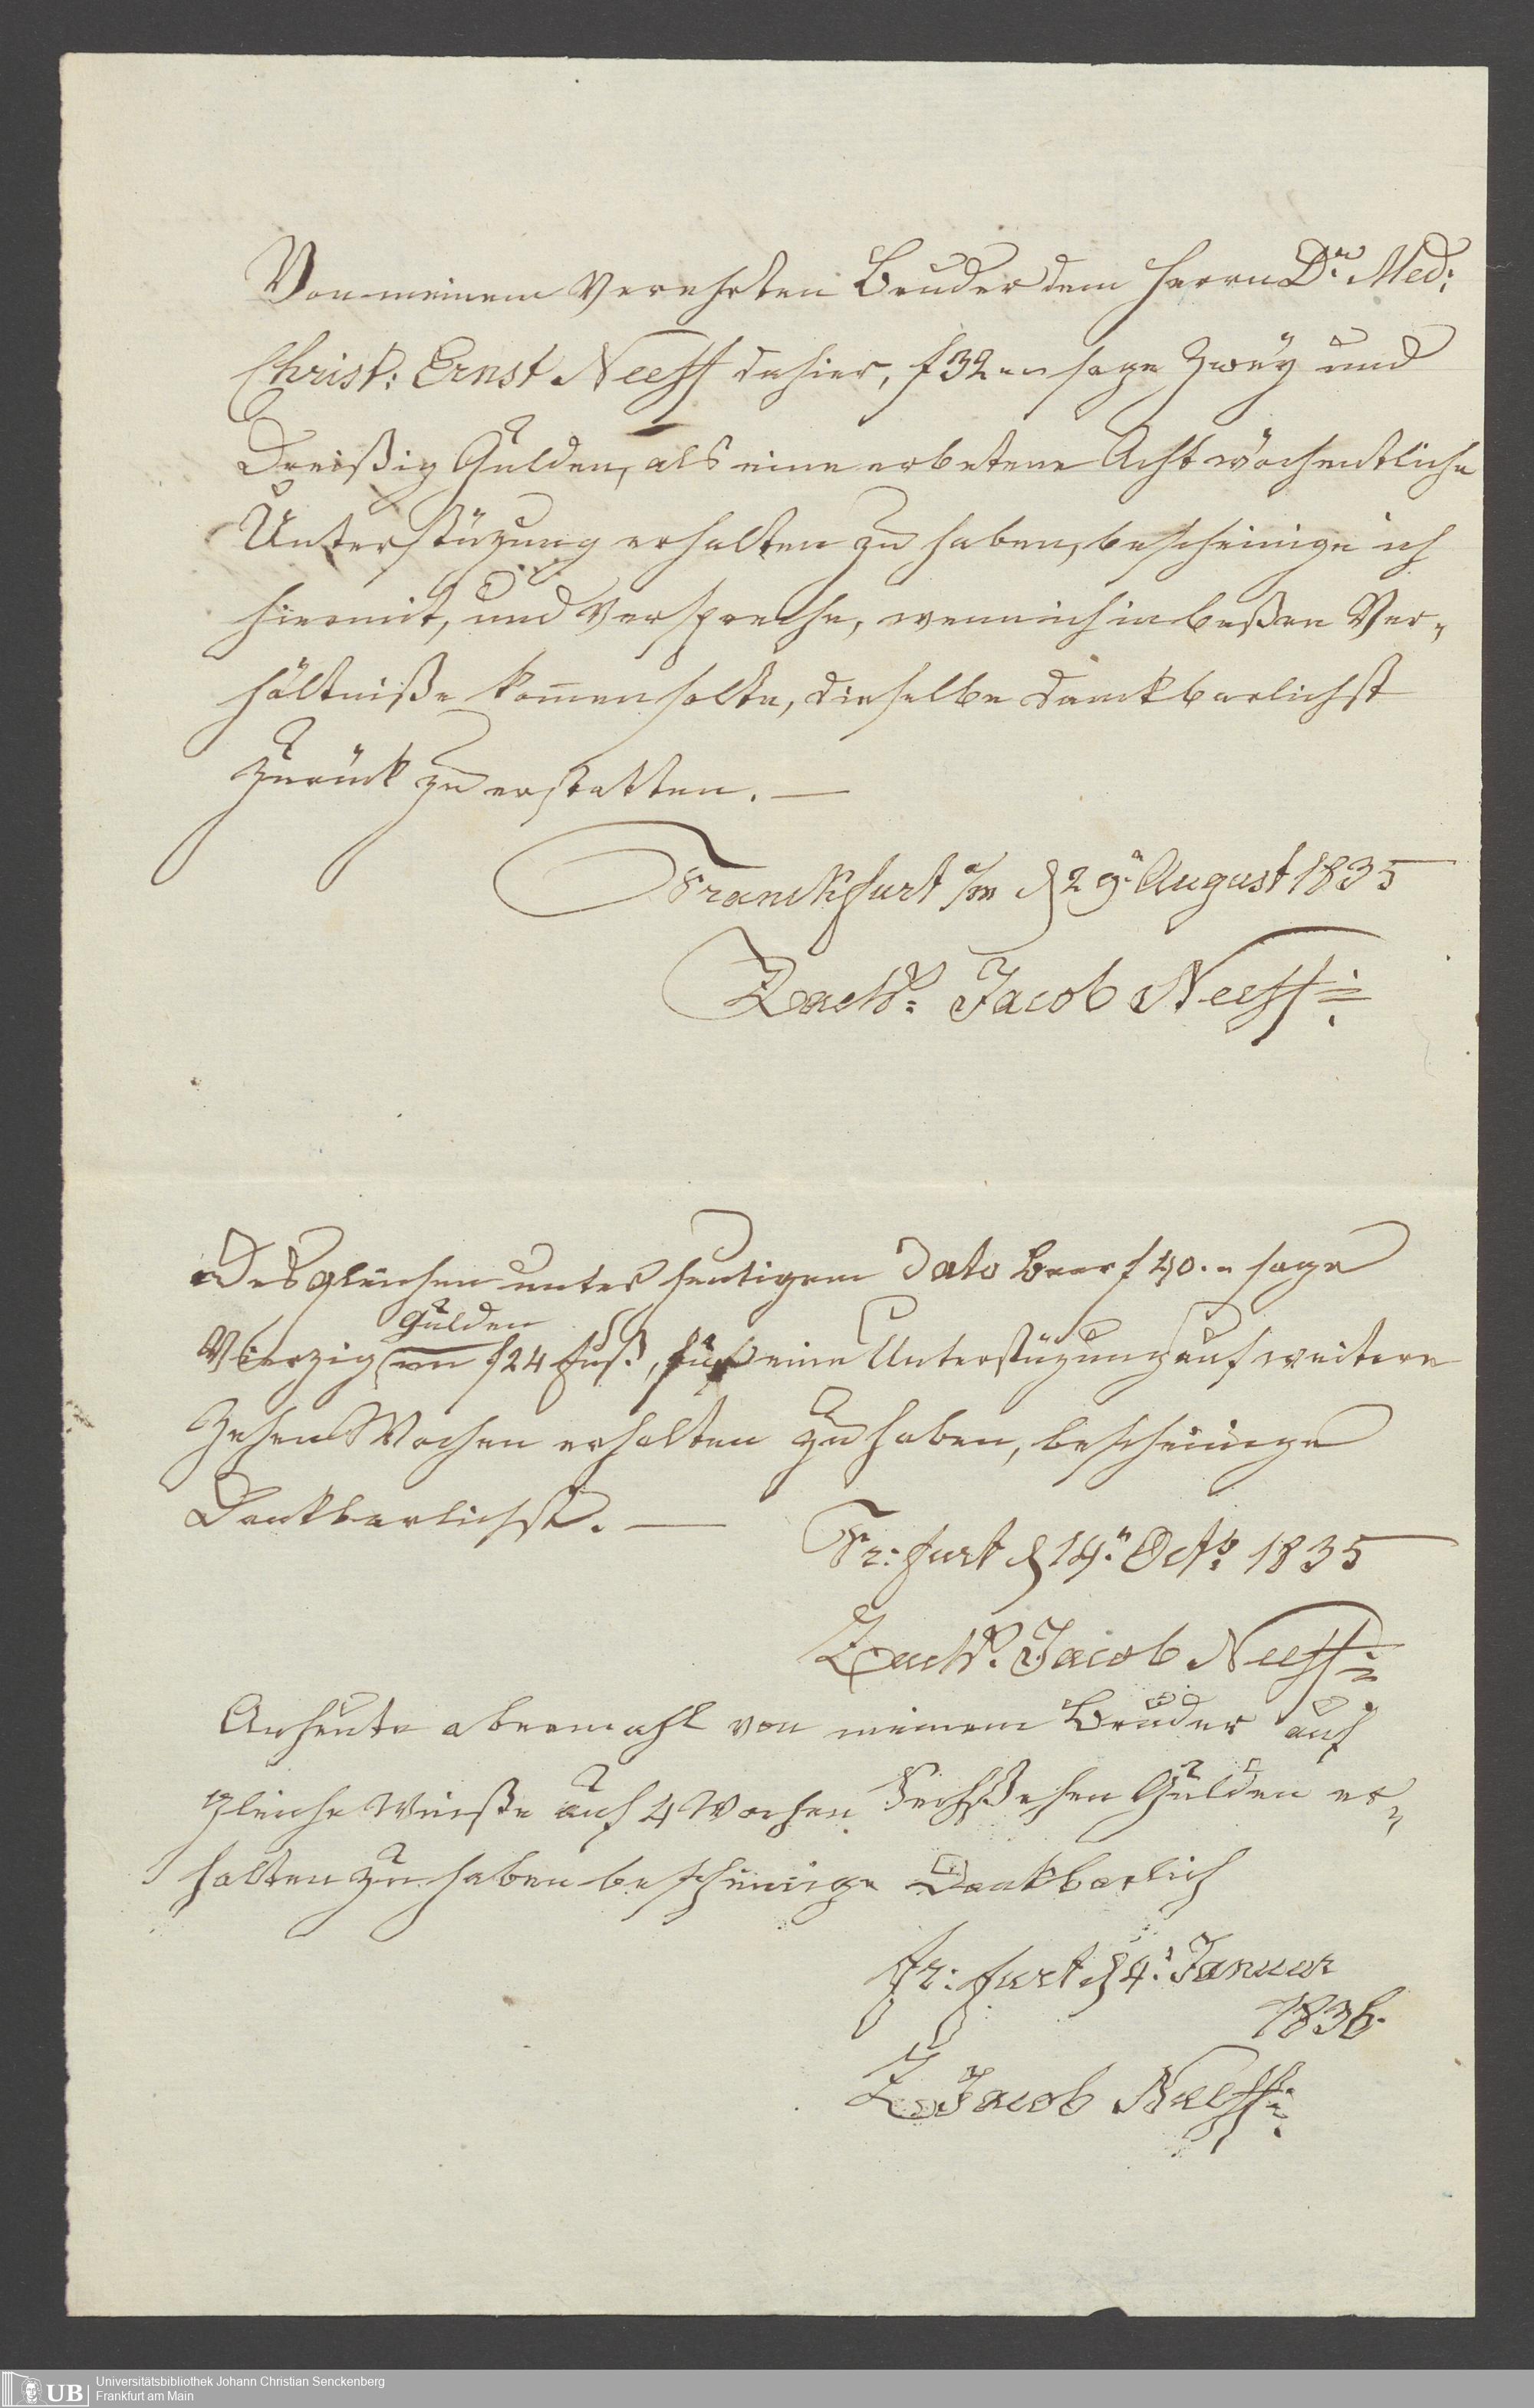 Von meinem Verehrten Bruder dem Herrn Dr. Med:
Christ: Ernst Neeff dahier, f 32 „ sage Zweÿ und
Dreißig Gulden, als eine erbetene Acht wöchentliche
Unterstüzung erhalten zu haben, bescheinige ich
hiermit, und Verspreche, wenn ich in beßere Ver„
hältniße kom̄en solte, dieselbe danckbarlichst
Zurück zu erstatten. —
Franckfurt a/m d 29n August 1835
Zachs. Jacob Neeff
Desgleichen unter heutigem Dato baar f 40. „ sage
Gulden
Vierzig im f 24 fuß, für eine Unterstüzung auf weitere
Zehen Wochen erhalten zu haben, bescheinige
Dankbarlichst. —
Fr: furt d 14n Octb. 1835
Zachs. Jacob Neeff
Anheute abermahl von meinem Bruder auf
gleiche Weiße auf 4 Wochen Sechßehen Gulden er„
halten zu haben bescheinige Dankbarlich
Fr: furt d 4t Januar
1836.
Z Jacob Neeff
UB
Universitätsbibliothek Johann Christian Senckenberg
Frankfurt am Main